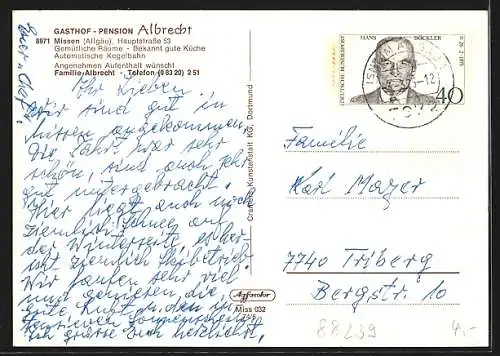 GASTHOF - PENSION Albrecht
8971 Missen (Allgäu), Hauptstraße 53
Gemütliche Räume - Bekannt gute Küche
Automatische Kegelbahn
Angenehmen Aufenthalt wünscht
Familie Albrecht - Telefon (0 83 20) 2 51
Ihr Lieben.
Wir sind gut in
Missen angekommen
Die Fahrt war sehr
schön, sind auch sehr
gut untergebracht.
Hier liegt auch noch
ziemlich Schnee auf
der Winterseite, es herr-
scht ziemlich Skibetrieb
Wir laufen sehr viel
und genießen die
gute Luft
ich grüsse Euch herzlichst
Euer
Cramers Kunstanstalt KG, Dortmund
Agfacolor
Miss 032
DEUTSCHE BUNDESPOST
HANS BÖCKLER
40
12
Familie
Karl Mayer
7740 Triberg
Bergstr. 10
88239
4.-